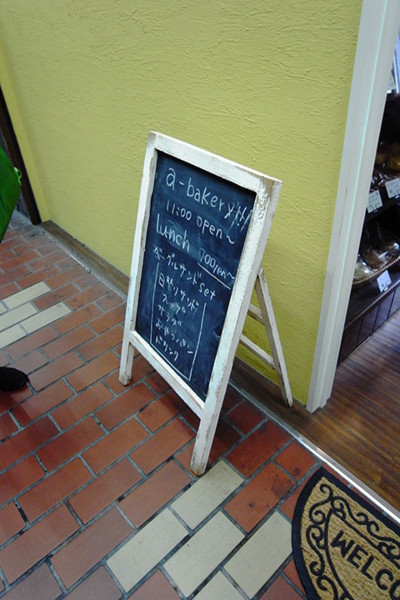 a-bakery!!!
11:00 open~
Lunch 700yen~
ベーグルサンドset
日替りサンド
スープ
サラダ
ドリンク
WELCO